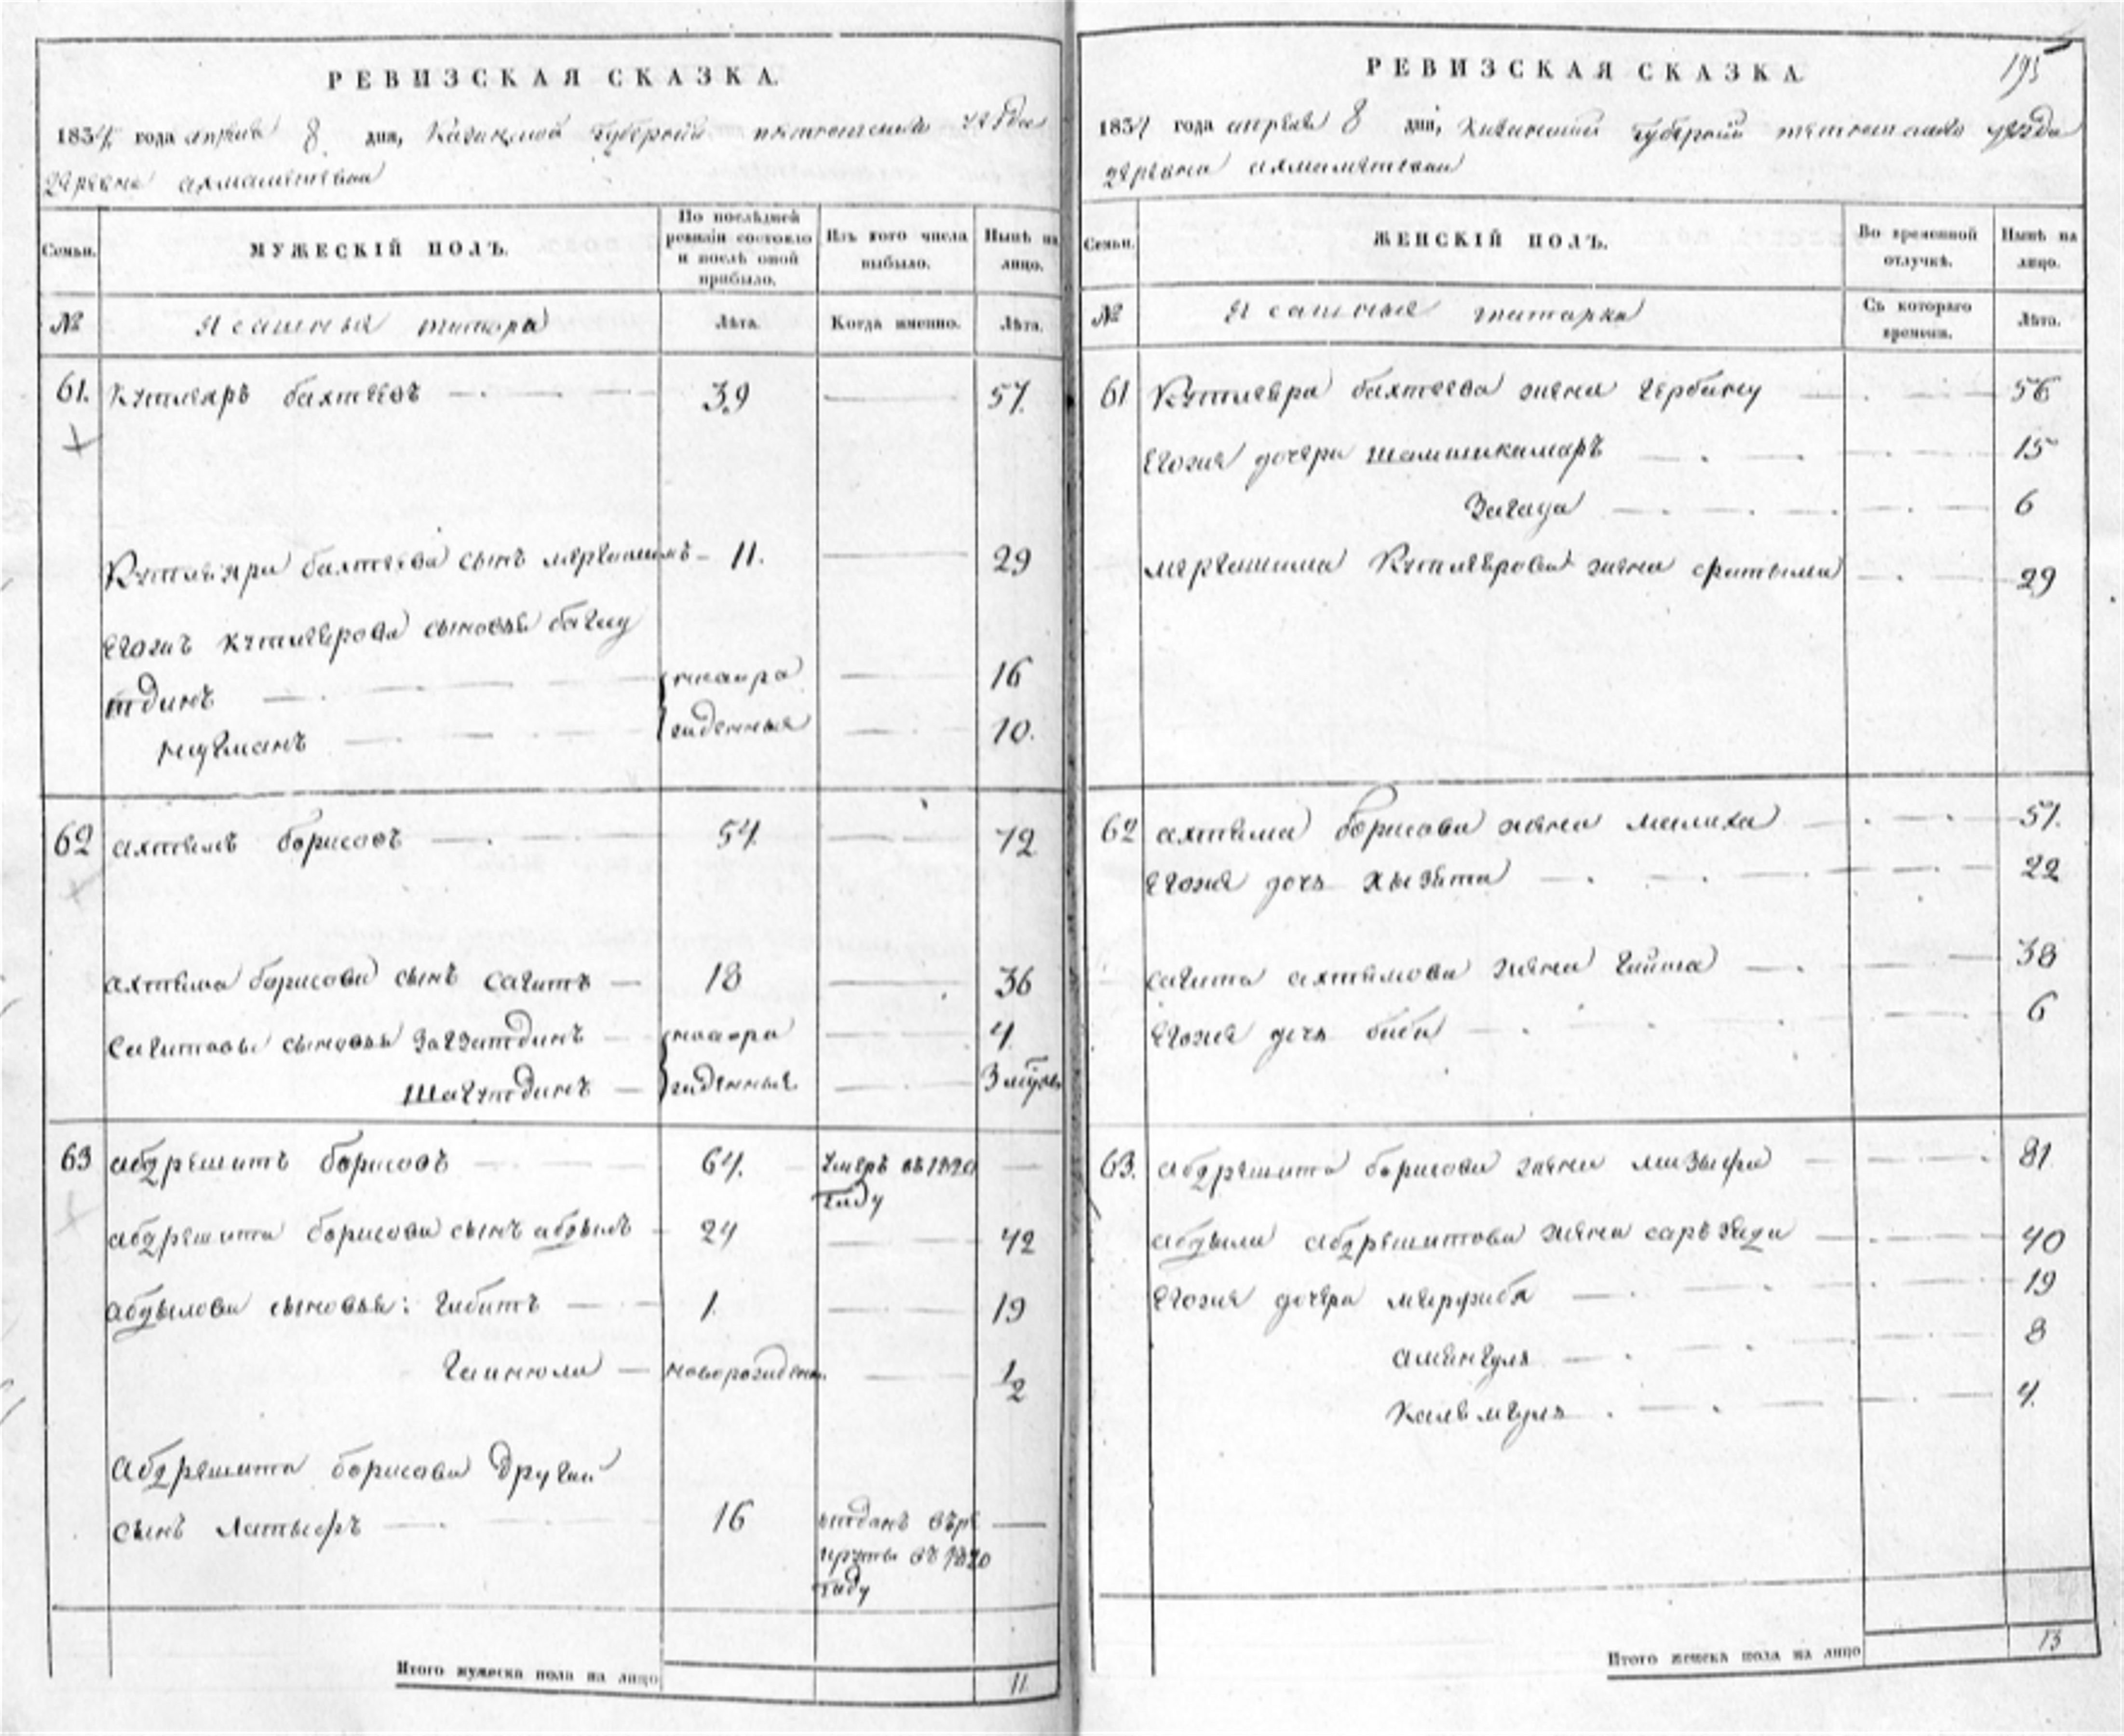 РЕВИЗСКАЯ СКАЗКА.
1834 года апреля 8 дня, Казанской губерній тетюшскаго уезда
деревни ахмаметевой
Семьи.
МУЖЕСКІЙ ПОЛЪ.
По послѣдней ревизіи состояло и послѣ оной прибыло.
Изъ того числа выбыло.
Нынѣ на лицо.
№
Ясашныя татара
Лѣта.
Когда именно.
Лѣта.
61. Кутлеяръ бахтеевъ 39 57.
Кутлъяра бахтеева сынъ 11. 29
Егожъ кутлеярова сыновья багау
тдинъ новоро 16
нугманъ жденныя 10.
62 ахтямъ борисовъ 54. 72
ахтяма борисова сынъ сагитъ 18 36
Сагитовы сыновья Загзитдинъ новоро 4
Шагутдинъ жденныя 3
63 абдряшитъ борисовъ 64. Умеръ въ 1820
году
абдряшита борисова сынъ абдылъ 24 42
абдылова сыновья: Гибитъ 1. 19
Гайнюла новорожденн. 1/2
Абдряшита борисова другай
сынъ Латыфъ 16 отданъ въ ре
круты въ 1820
году
Итого мужеска пола на лицо 11
195
РЕВИЗСКАЯ СКАЗКА
1834 года апреля 8 дня, Казанской губерній тетюшскаго уезда
деревни ахмаметевой
Семьи.
ЖЕНСКІЙ ПОЛЪ.
Во временной отлучкѣ.
Нынѣ на лицо.
№
Ясашныя татарка
Съ котораго времени.
Лѣта.
61 Кутлеяра бахтеева жена Гербану 56
Егожа дочери шамшикамаръ 15
Загида 6
Кутлеярова жена фатыма 29
62 ахтяма борисова жена малика 51.
Егожа дочь хызята 22
сагита ахтямова жена Гайша 38
Егожа дочь биби 6
63. абдряшита борисова жена мизыфа 81
абдыла абдряшитова жена сарьзяда 40
Егожа дочери мярфуба 19
амингуля 8
4.
Итого женска пола на лицо 13